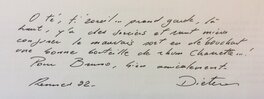 O té, ti zoreil... prend garde, là
haut, y'a des sorciers et vaut mieux
conjurer le mauvais sort en débouchant
une bonne bouteille de rhum Charrette...!
Pour Bruno, bien amicalement.
Rennes 92. Dieter